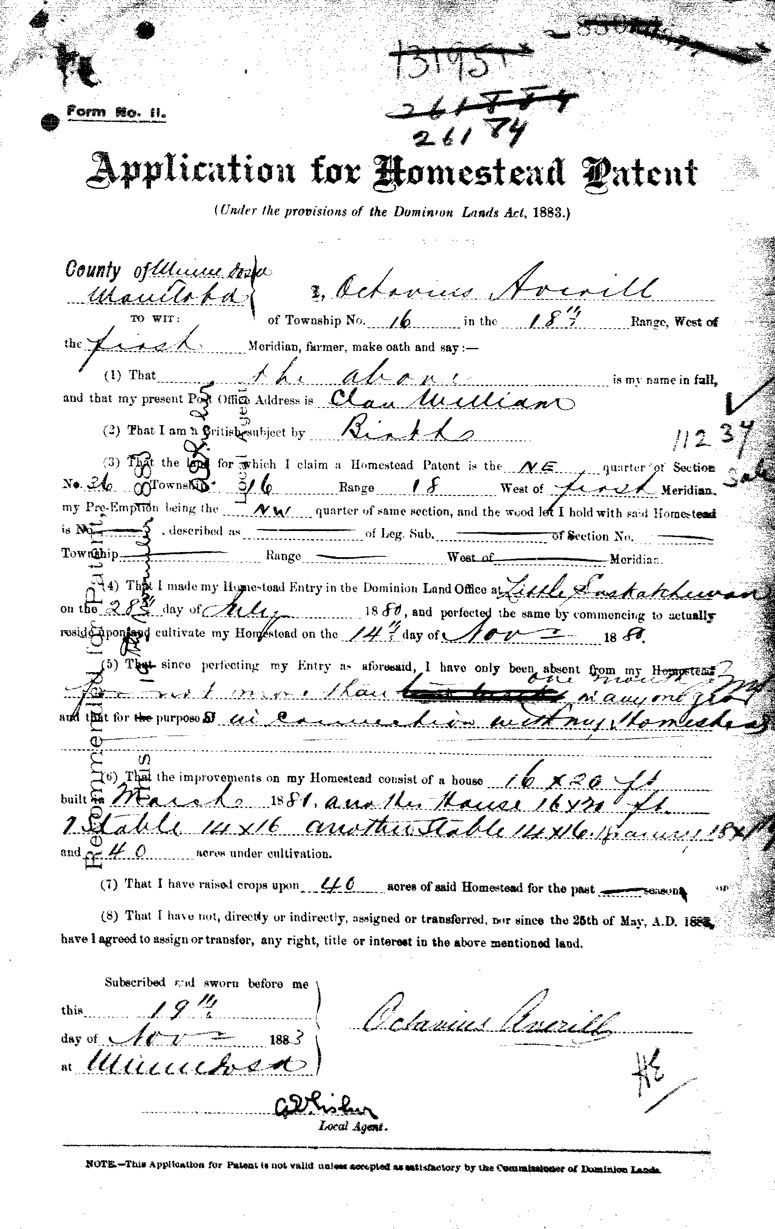 131951
261884
26184
Form No. 11.
Application for Homestead Patent
(Under the provisions of the Dominion Lands Act, 1883.)
County of Minnedosa
Manitoba
I, Octavius Averill
TO WIT: of Township No. 16 in the 18th Range, West of
the first Meridian, farmer, make oath and say:—
(1) That the above is my name in full,
and that my present Post Office Address is Clan William
(2) That I am a British subject by Birth
11234
(3) That the land for which I claim a Homestead Patent is the NE quarter of Section
Sale
No. 36 Township 16 Range 18 West of first Meridian,
my Pre-Emption being the NW quarter of same section, and the wood lot I hold with said Homestead
is No , described as of Leg. Sub. of Section No.
Township Range West of Meridian.
(4) That I made my Homestead Entry in the Dominion Land Office at Little Saskatchewan
on the 28th day of July 1880, and perfected the same by commencing to actually
reside upon and cultivate my Homestead on the 14th day of Nov 1880.
(5) That since perfecting my Entry as aforesaid, I have only been absent from my Homestead
one month
for not more than in any one year
and that for the purpose in connection with my Homestead
(6) That the improvements on my Homestead consist of a house 16 x 20 ft
built in March 1881, another House 16x20 ft.
1 Stable 14x16 another Stable 14x16. Granary 18x
and 40 acres under cultivation.
(7) That I have raised crops upon 40 acres of said Homestead for the past seasons
(8) That I have not, directly or indirectly, assigned or transferred, nor since the 25th of May, A.D. 1883,
have I agreed to assign or transfer, any right, title or interest in the above mentioned land.
Recommended for Patent,
this 19th November 1883
Local Agent
Subscribed and sworn before me
this 19th
day of Nov 1883
at Minnedosa
Octavius Averill
HE
Local Agent.
NOTE.—This Application for Patent is not valid unless accepted as satisfactory by the Commissioner of Dominion Lands.